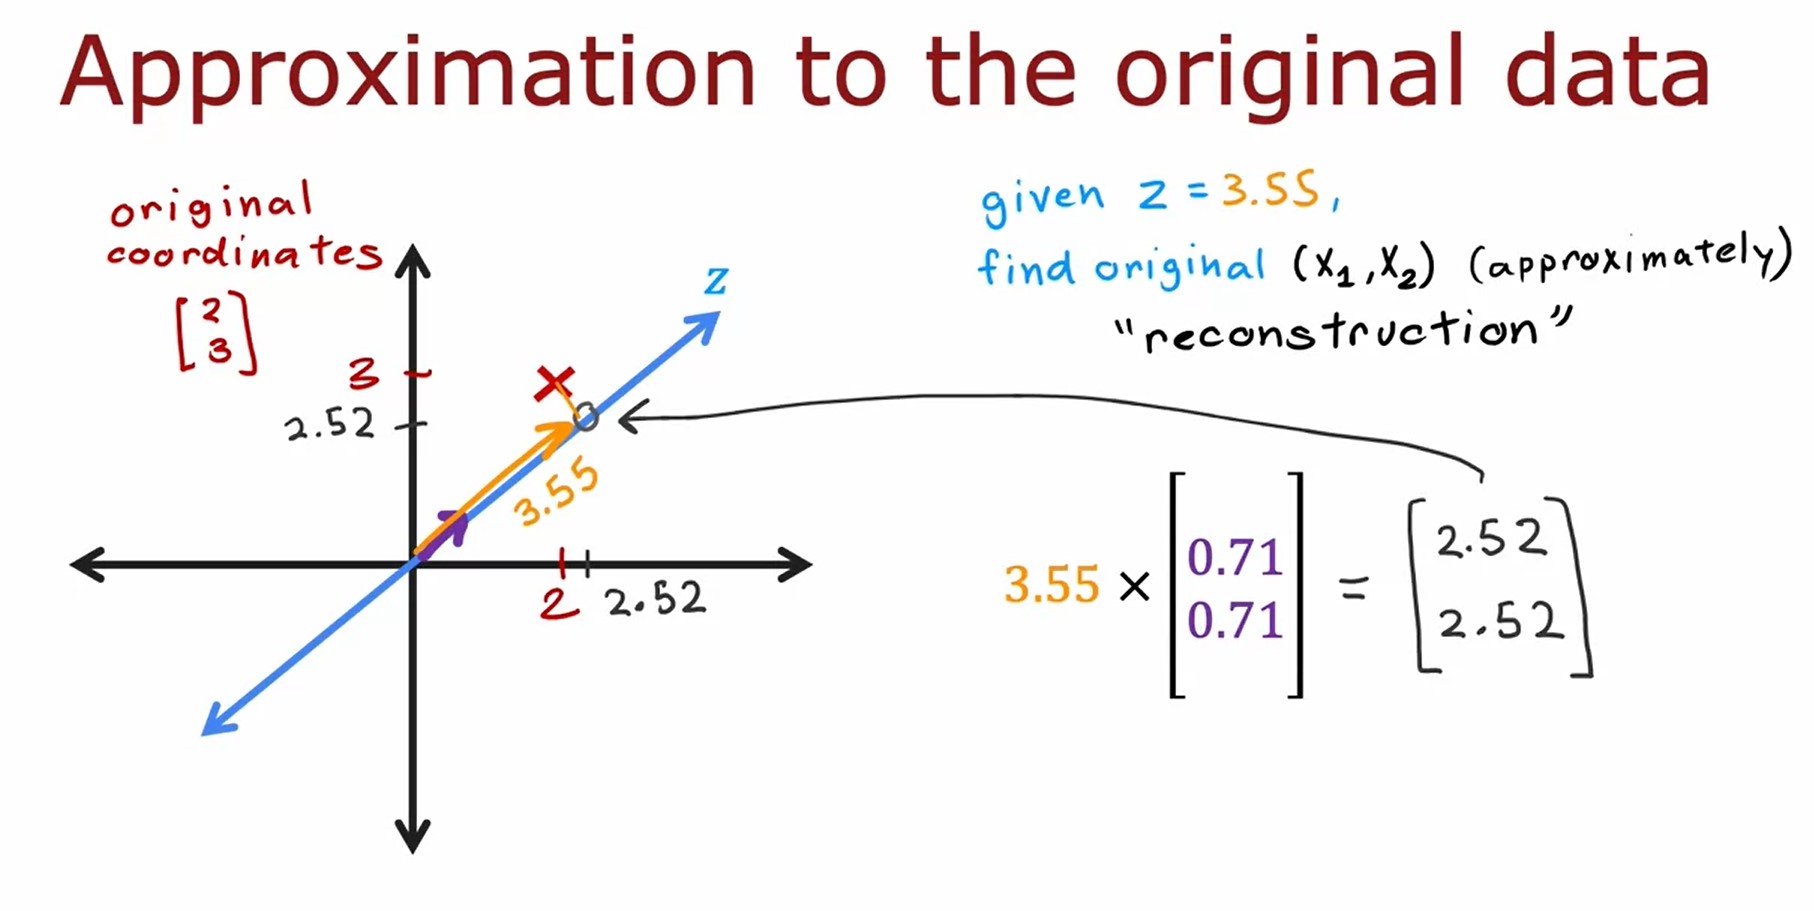 Approximation to the original data
original
coordinates
[2
3]
3
2.52
z
3.55
2
2.52
given z = 3.55,
find original (x₁, x₂) (approximately)
"reconstruction"
3.55 × [0.71
0.71] = [2.52
2.52]